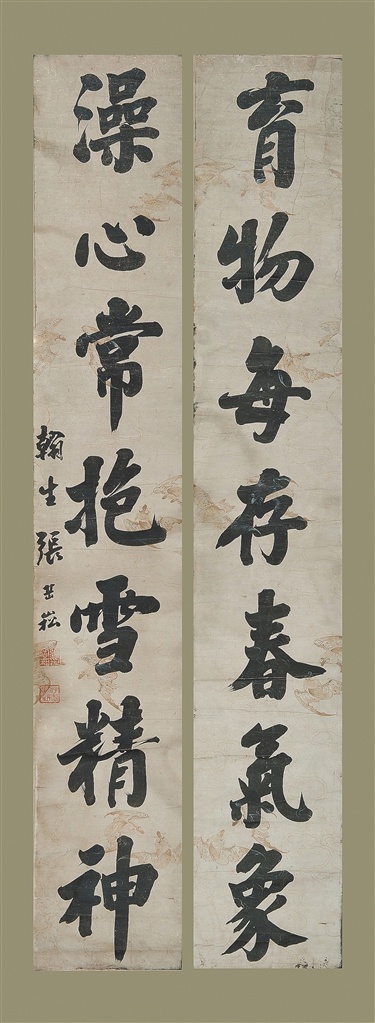 育物每存春氣象
澡心常抱雪精神
翰生張岳崧